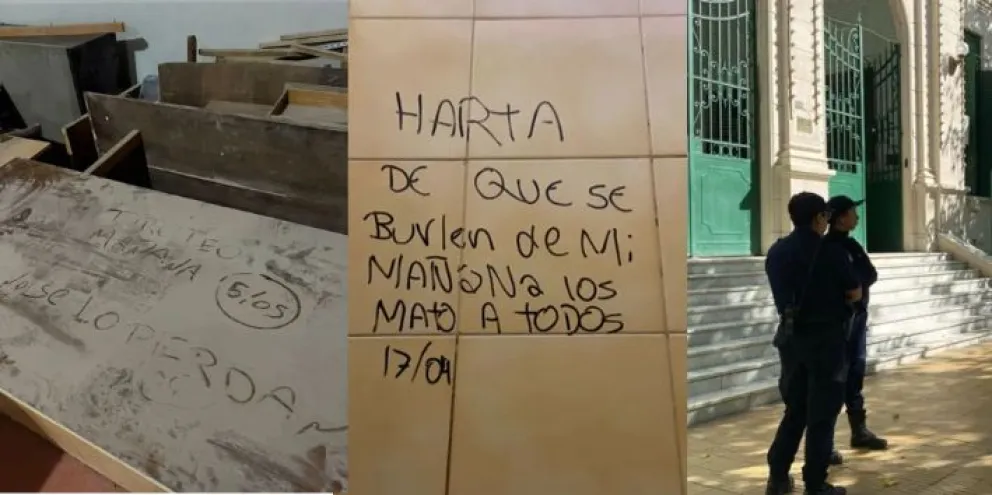 TIROTEO
MAÑANA
5/05
No se LO PIERDAN
HARTA
DE QUE SE
Burlen de Mi
MAÑANa los
MATO A TODOS
17/04